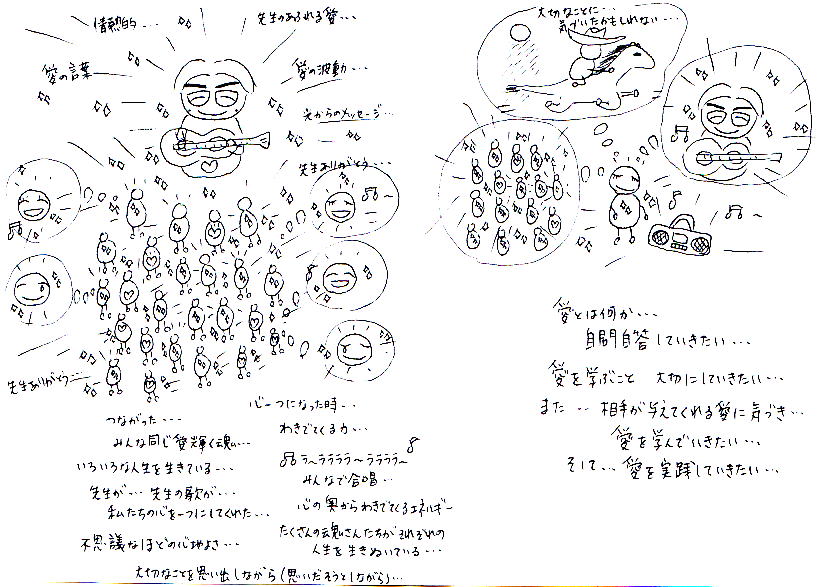 情熱的・・・
先生のあふれる愛・・・
愛の言葉
愛の波動・・・
天からのメッセージ・・・
先生ありがとう・・・
先生ありがとう・・・
つながった・・・
みんな同じ愛輝く魂・・・
いろいろな人生を生きている・・・
先生が・・・先生の歌が・・・
私たちの心を一つにしてくれた・・・
不思議なほどの心地よさ・・・
心一つになった時・・・
わきでてくる力・・・
ラ〜ララララ〜ララララ〜
みんなで合唱・・・
心の奥からわきでてくるエネルギー
たくさんの魂さんたちがそれぞれの
人生を生きぬいている・・・
大切なことを思い出しながら(思いだそうとしながら)・・・
大切なことに・・・
気づいたかもしれない・・・
愛とは何か・・・
自問自答していきたい・・・
愛を学ぶこと 大切にしていきたい・・・
また・・相手が与えてくれる愛に気づき・・・
愛を学んでいきたい・・・
そして・・・愛を実践していきたい・・・